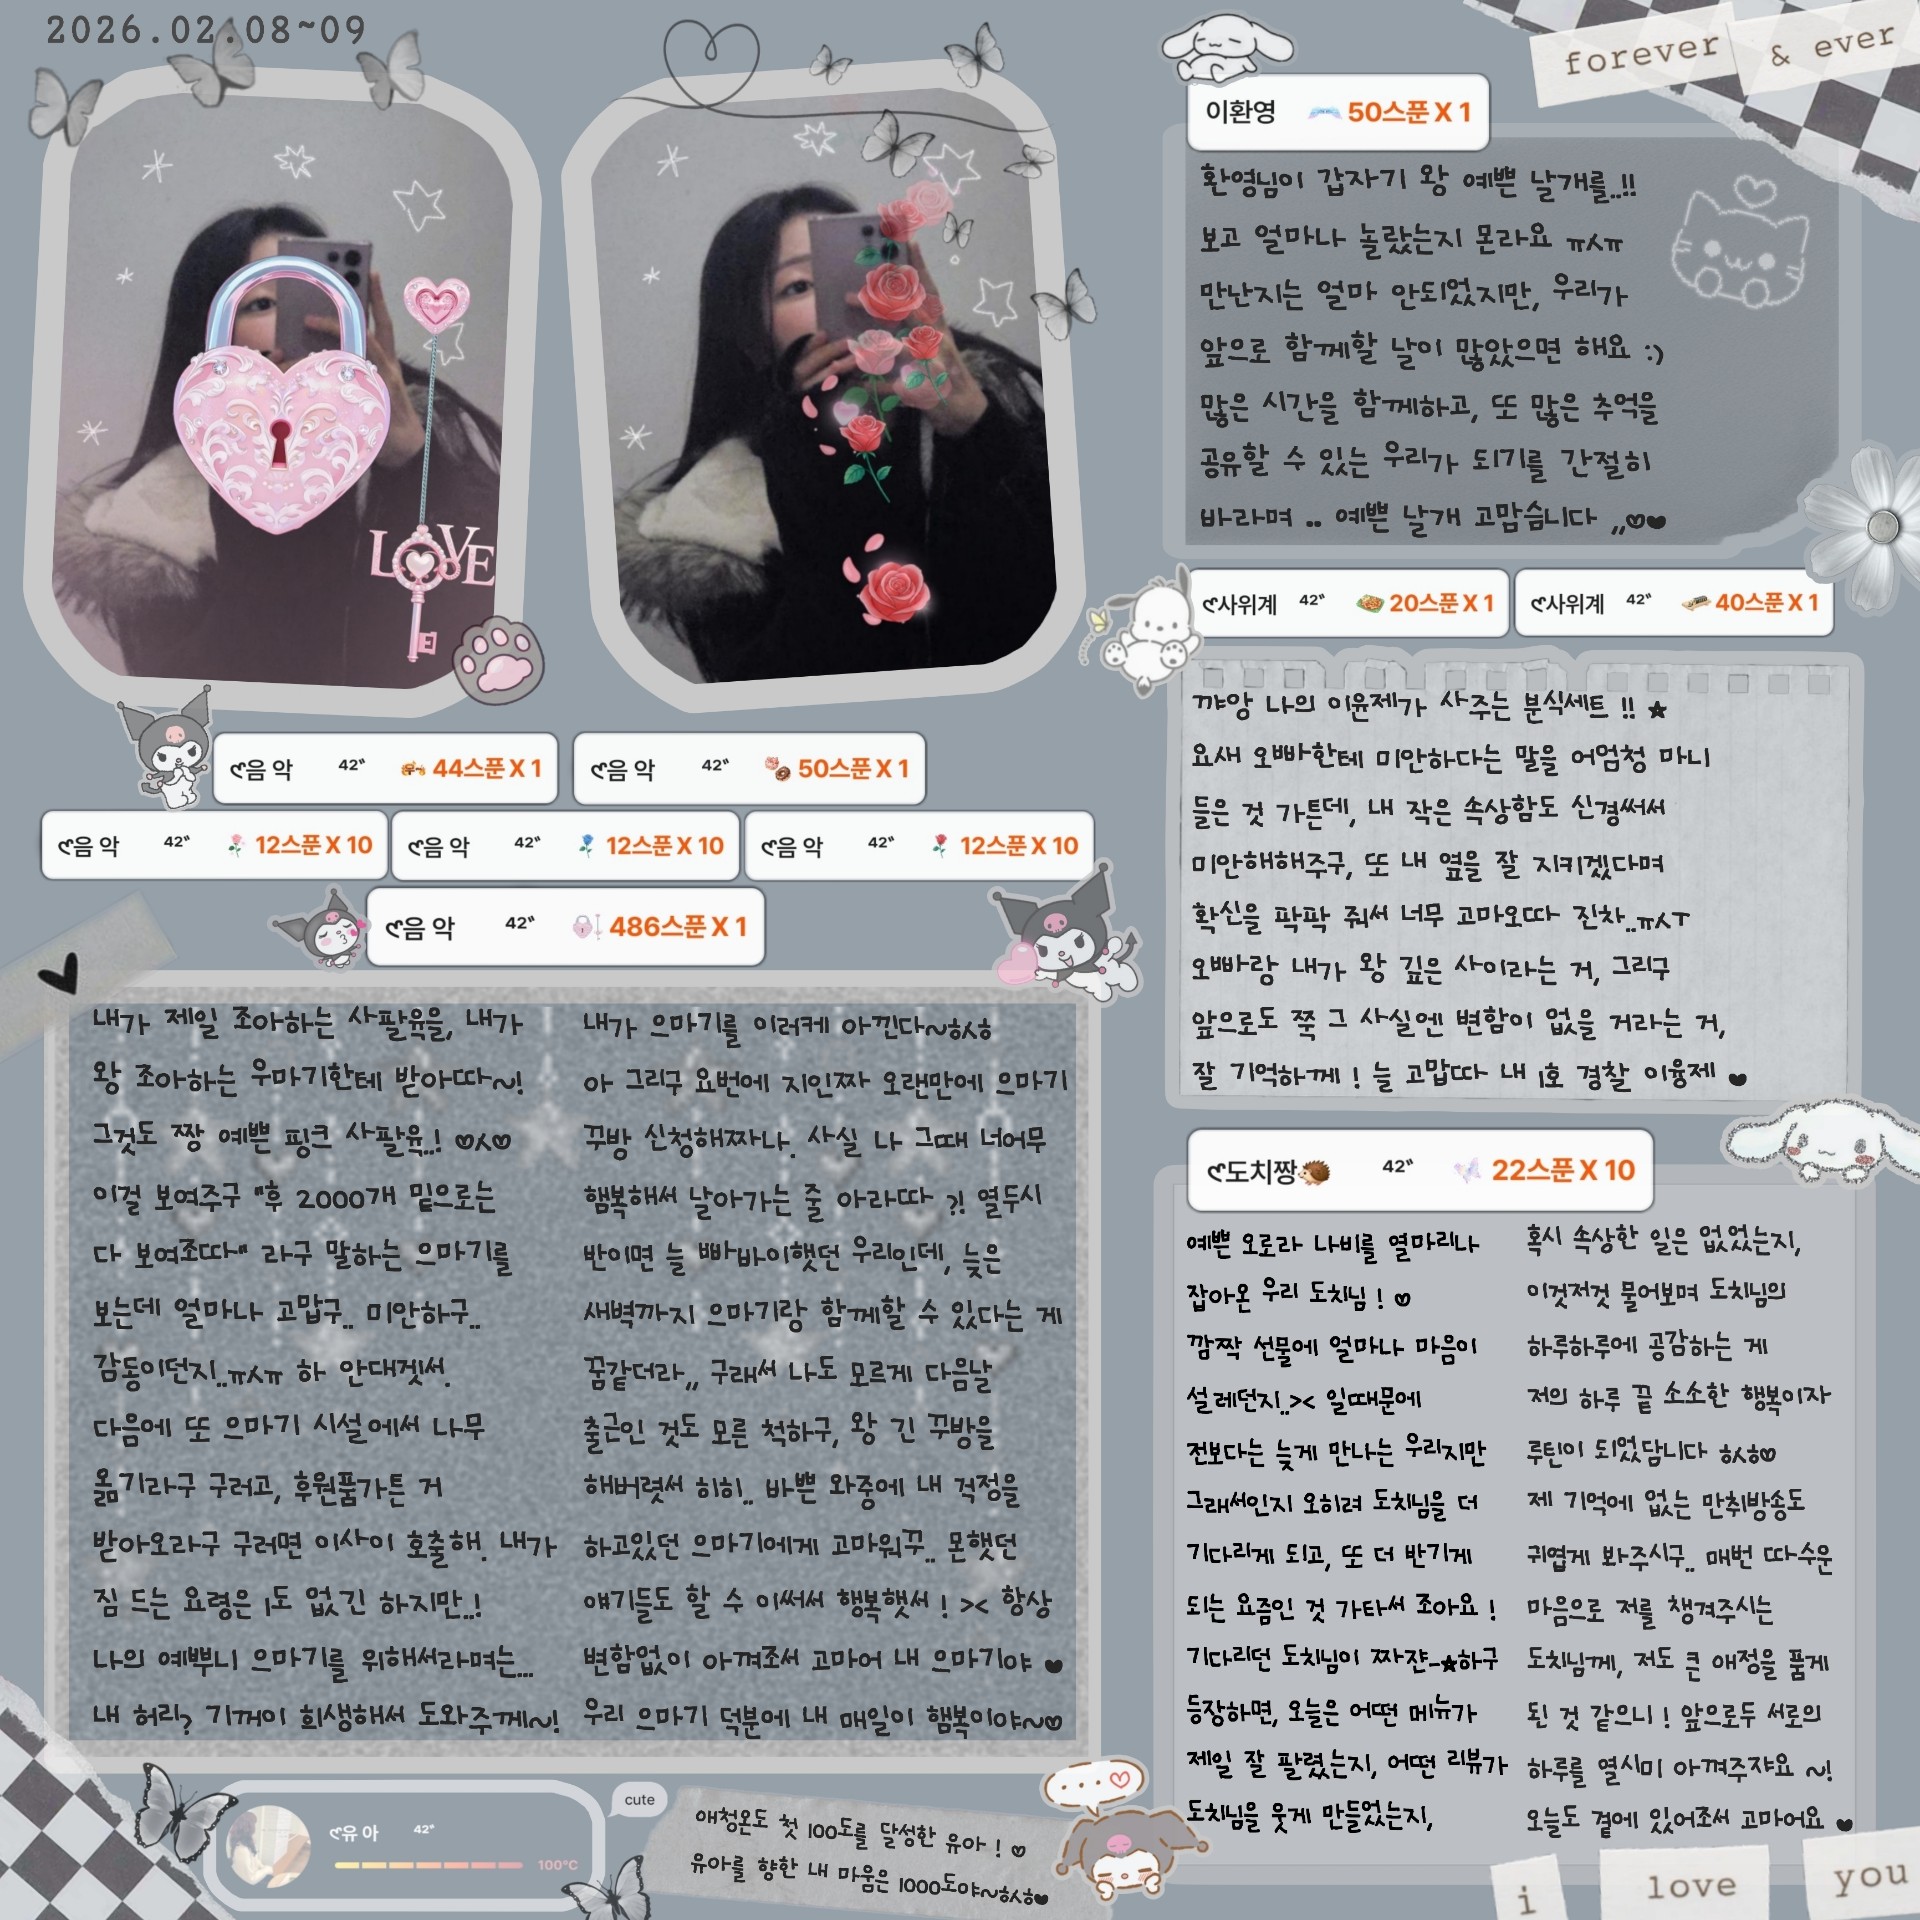 2026.02.08~09
forever & ever
이환영 50스푼 X 1
환영님이 갑자기 왕 예쁜 날개를..!!
보고 얼마나 놀랐는지 몬라요 ㅠㅅㅠ
만난지는 얼마 안되었지만, 우리가
앞으로 함께할 날이 많았으면 해요 :)
많은 시간을 함께하고, 또 많은 추억을
공유할 수 있는 우리가 되기를 간절히
바라며 .. 예쁜 날개 고맙슴니다 ,,♡♥
ღ사위계 42" 20스푼 X 1
ღ사위계 42" 40스푼 X 1
꺄앙 나의 이윤제가 사주는 분식세트 !! ★
요새 오빠한테 미안하다는 말을 어엄청 마니
들은 것 가튼데, 내 작은 속상함도 신경써서
미안해해주구, 또 내 옆을 잘 지키겠다며
확신을 팍팍 줘서 너무 고마오따 진차..ㅠㅅㅜ
오빠랑 내가 왕 깊은 사이라는 거, 그리구
앞으로도 쭉 그 사실엔 변함이 없을 거라는 거,
잘 기억하께 ! 늘 고맙따 내 1호 경찰 이융제 ♥
ღ음 악 42" 44스푼 X 1
ღ음 악 42" 50스푼 X 1
ღ음 악 42" 12스푼 X 10
ღ음 악 42" 12스푼 X 10
ღ음 악 42" 12스푼 X 10
ღ음 악 42" 486스푼 X 1
LOVE
내가 제일 조아하는 사팔육을, 내가
왕 조아하는 우마기한테 받아따~!
그것도 짱 예쁜 핑크 사팔육..! ♡ㅅ♡
이걸 보여주구 "후 2000개 밑으로는
다 보여조따" 라구 말하는 으마기를
보는데 얼마나 고맙구.. 미안하구..
감동이던지..ㅠㅅㅠ 하 안대겟서.
다음에 또 으마기 시설에서 나무
옮기라구 구러고, 후원품가튼 거
받아오라구 구러면 이사이 호출해. 내가
짐 드는 요령은 1도 없긴 하지만..!
나의 예뿌니 으마기를 위해서라며는...
내 허리? 기꺼이 희생해서 도와주께~!
내가 으마기를 이러케 아낀다~ㅎㅅㅎ
아 그리구 요번에 지인짜 오랜만에 으마기
꾸방 신청해짜나. 사실 나 그때 너어무
행복해서 날아가는 줄 아라따 ?! 열두시
반이면 늘 빠바이햇던 우리인데, 늦은
새벽까지 으마기랑 함께할 수 있다는 게
꿈같더라,, 구래서 나도 모르게 다음날
출근인 것도 모른 척하구, 왕 긴 꾸방을
해버렷서 히히.. 바쁜 와중에 내 걱정을
하고있던 으마기에게 고마워꾸.. 몬햇던
얘기들도 할 수 이써서 행복햇서 ! >< 항상
변함없이 아껴조서 고마어 내 으마기야 ♥
우리 으마기 덕분에 내 매일이 행복이야~♡
ღ도치짱🦔 42" 22스푼 X 10
예쁜 오로라 나비를 열마리나
잡아온 우리 도치님 ! ♡
깜짝 선물에 얼마나 마음이
설레던지..>< 일때문에
전보다는 늦게 만나는 우리지만
그래서인지 오히려 도치님을 더
기다리게 되고, 또 더 반기게
되는 요즘인 것 가타서 조아요 !
기다리던 도치님이 짜쟌-★하구
등장하면, 오늘은 어떤 메뉴가
제일 잘 팔렸는지, 어떤 리뷰가
도치님을 웃게 만들었는지,
혹시 속상한 일은 없었는지,
이것저것 물어보며 도치님의
하루하루에 공감하는 게
저의 하루 끝 소소한 행복이자
루틴이 되었담니다 ㅎㅅㅎ♡
제 기억에 없는 만취방송도
귀엽게 봐주시구.. 매번 따수운
마음으로 저를 챙겨주시는
도치님께, 저도 큰 애정을 품게
된 것 같으니 ! 앞으로두 서로의
하루를 열시미 아껴주쟈요 ~!
오늘도 곁에 있어조서 고마어요 ♥
ღ유 아 42"
100°C
cute
애청온도 첫 100도를 달성한 유아 ! ♡
유아를 향한 내 마움은 1000도야~ㅎㅅㅎ♥
...♡
i love you